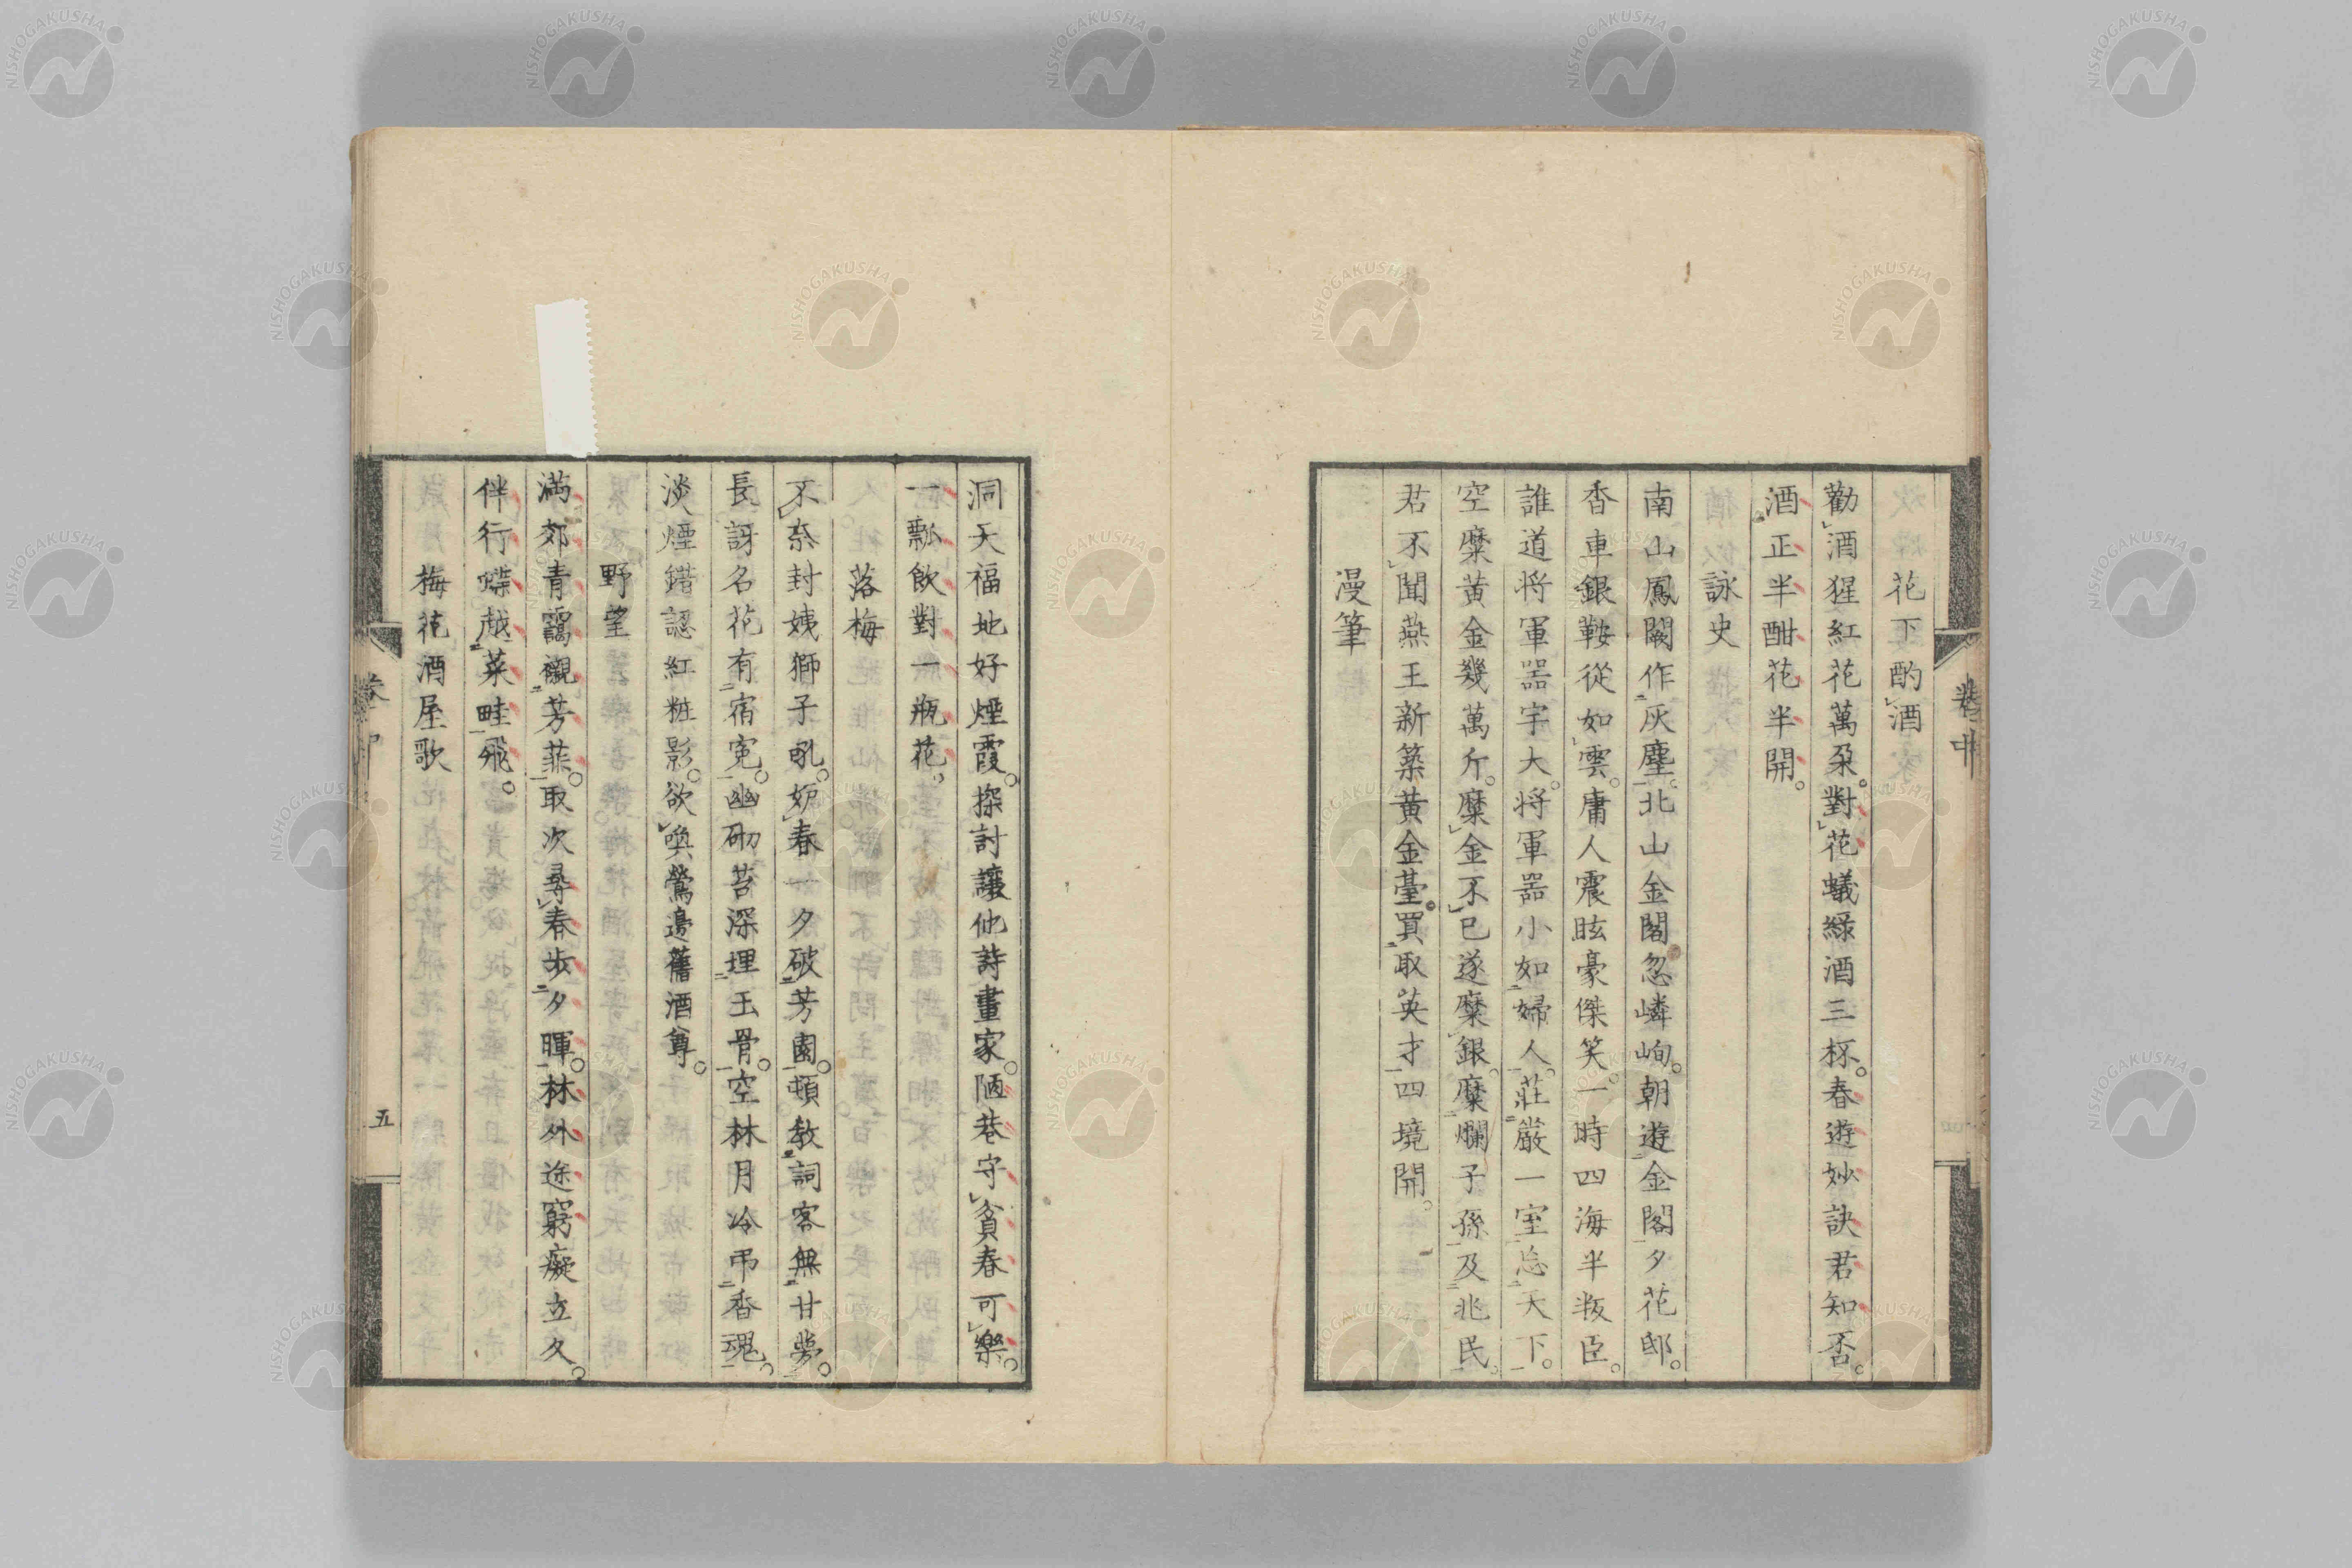 花下酌酒
勸酒猩紅花萬朶對花蟻綠酒三杯春遊妙訣君知否
酒正半酣花半開
詠史
南山鳳閣作灰塵北山金閣忽嶙峋朝遊金閣夕花邸
香車銀鞍從如雲庸人震眩豪傑笑一時四海半叛臣
誰道将軍器宇大将軍器小如婦人莊嚴一室忘天下
空糜黄金幾萬斤糜金不已遂糜銀糜爛子孫及兆民
君不聞燕王新築黄金臺買取英才四境開
漫筆
洞天福地好煙霞探討讓他詩畫家陋巷守貧春可樂
一瓢飲對一瓶花
落梅
不奈封姨獅子吼妒春一夕破芳園頓教詞客無甘夢
長訝名花有宿寃幽砌苔深埋玉骨空林月冷弔香魂
淡煙錯認紅粧影欲喚鶯邊舊酒尊
野望
滿郊青靄襯芳菲取次尋春步夕暉林外途窮癡立久
伴行蝶越菜畦飛
梅花酒屋歌
卷中
五
NISHOGAKUSHA